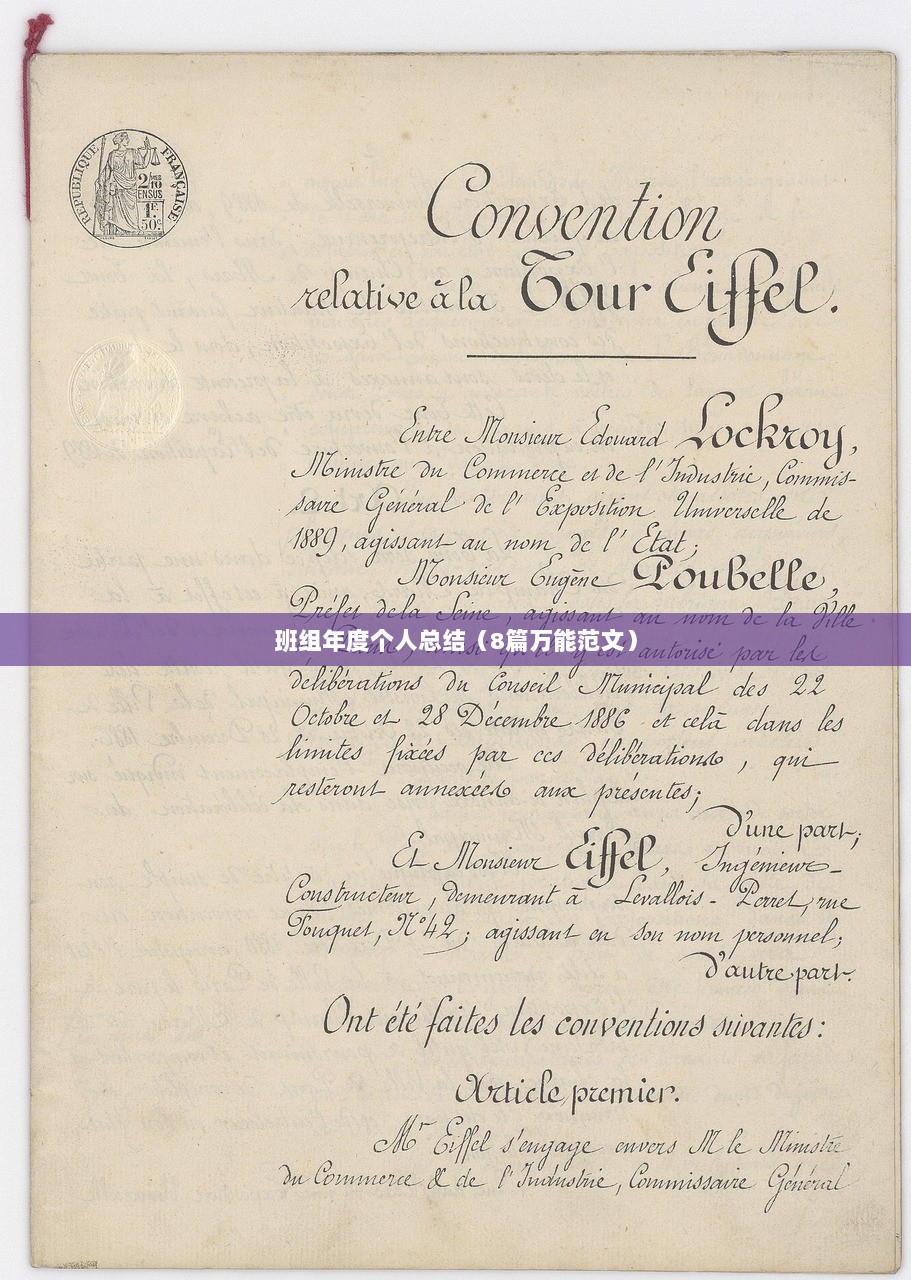 RÉPUBLIQUE FRANÇAISE
2/10
EN SUS
1F.
50c
Convention
relative à la Tour Eiffel.
Entre Monsieur Edouard Lockroy,
Ministre du Commerce et de l'Industrie, Commis-
saire Général de l'Exposition Universelle de
1889, agissant au nom de l'Etat;
Monsieur Eugène Poubelle,
Préfet de la Seine, agissant au nom de la Ville
班组年度个人总结（8篇万能范文）
autorisé par les
délibérations du Conseil Municipal des 22
Octobre et 28 Décembre 1886 et celà dans les
limites fixées par ces délibérations, qui
resteront annexées aux présentes;
d'une part;
Et Monsieur Eiffel, Ingénieur-
Constructeur, demeurant à Levallois-Perret, rue
Fouquet, N° 42; agissant en son nom personnel;
d'autre part.
Ont été faites les conventions suivantes:
Article premier.
Mr Eiffel s'engage envers M le Ministre
du Commerce & de l'Industrie, Commissaire Général